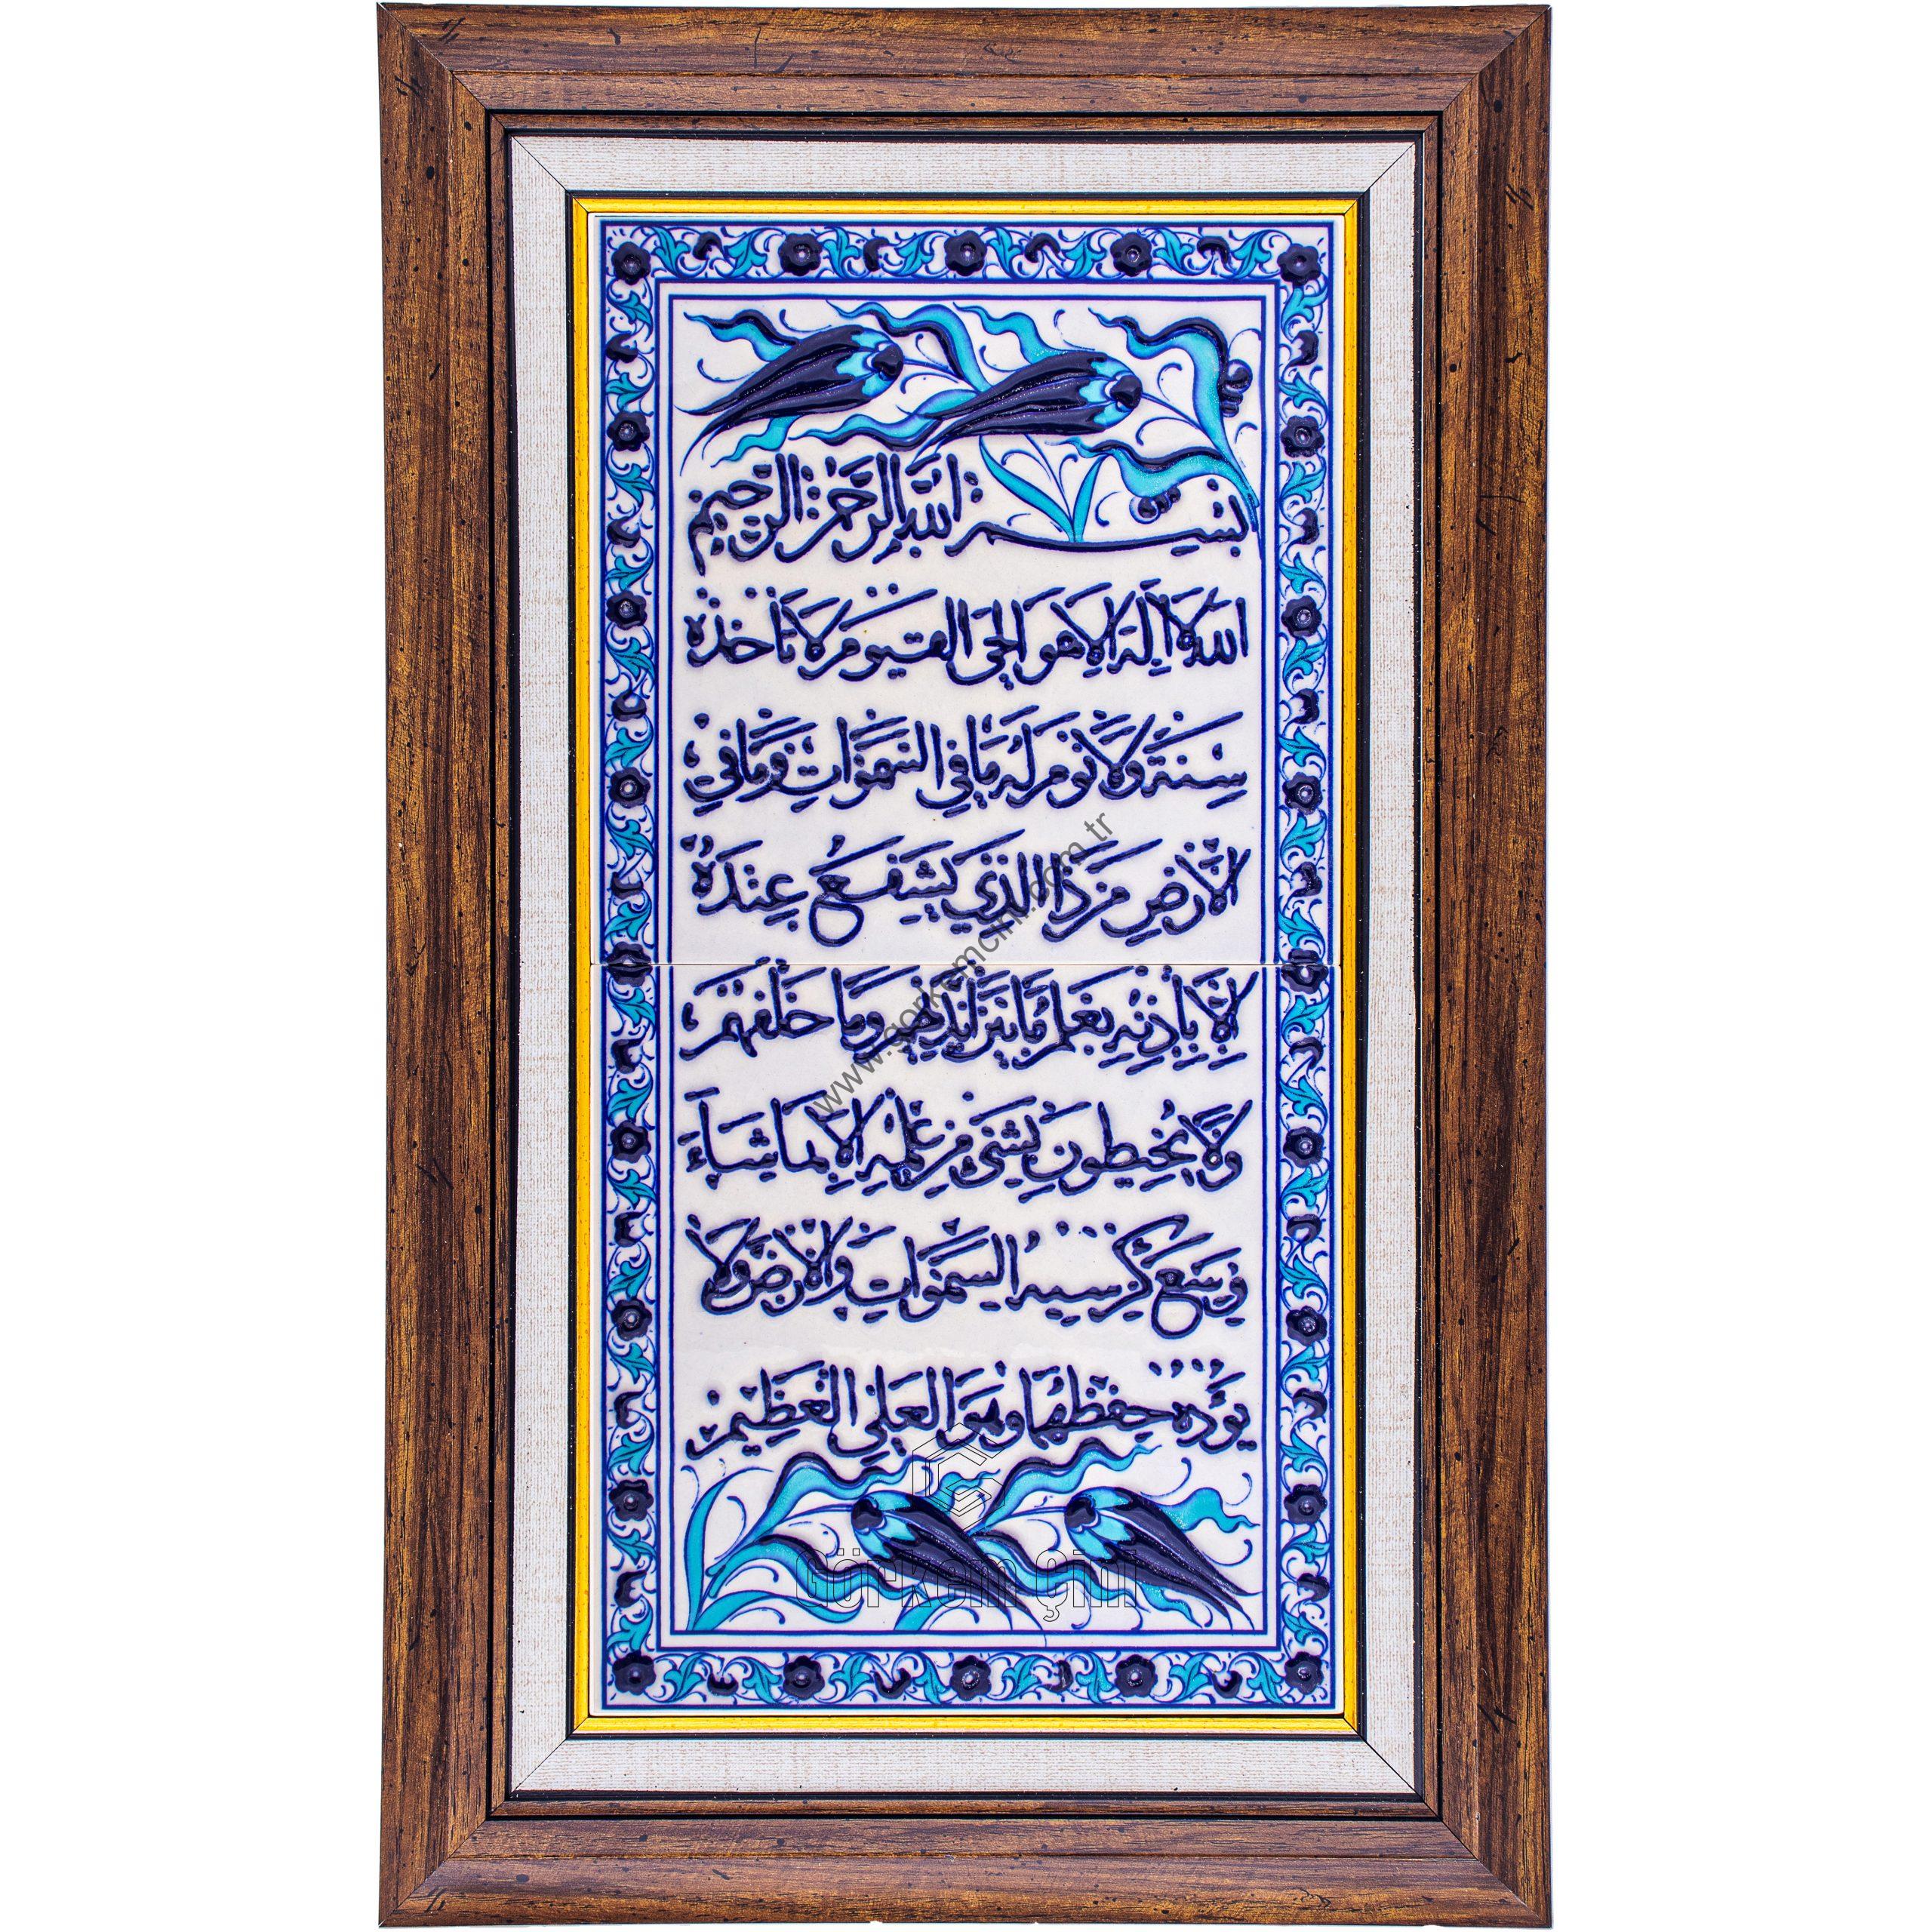 بسم الله الرحمن الرحيم
الله لا اله الا هو الحي القيوم لا تأخذه
سنة ولا نوم له ما في السموات وما في
الارض من ذا الذي يشفع عنده
الا باذنه يعلم ما بين ايديهم وما خلفهم
ولا يحيطون بشئ من علمه الا بما شاء
وسع كرسيه السموات والارض ولا
يؤده حفظهما وهو العلي العظيم
www.gorkemcini.com.tr
Görkem Çini